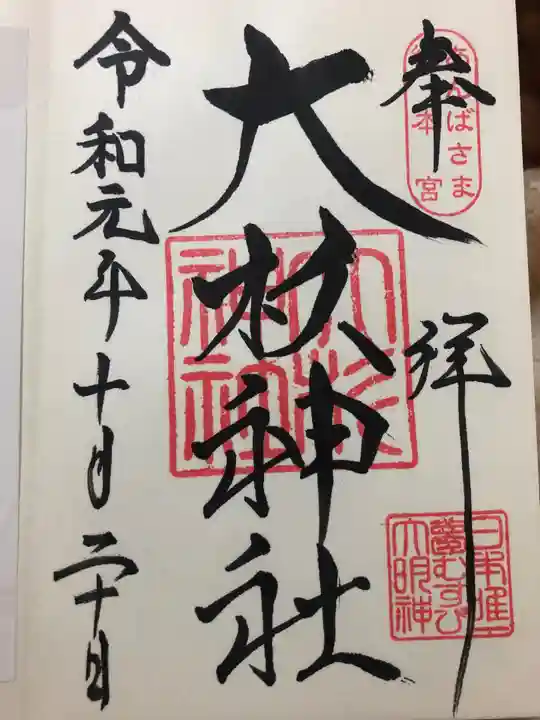 奉拝
あんばさま
総本宮
日本唯一
夢むすび
大明神
大杉神社
大杉
神社
令和元年十月二十日